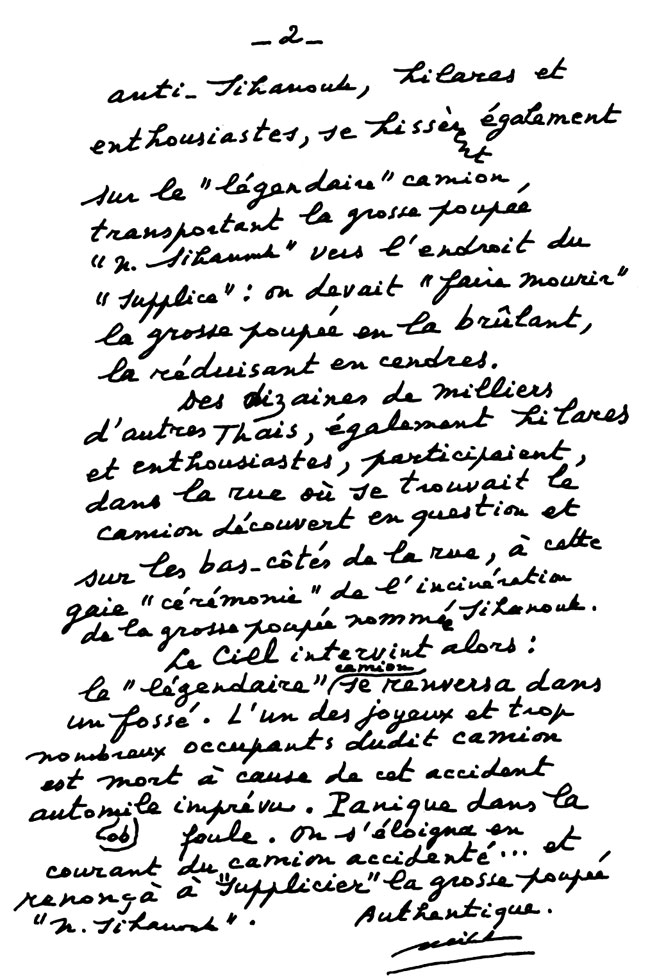 - 2 -
anti-Sihanouk, hilares et
enthousiastes, se hissèrent également
sur le "légendaire" camion,
transportant la grosse poupée
"N. Sihanouk" vers l'endroit du
"supplice" : on devait "faire mourir"
la grosse poupée en la brûlant,
la réduisant en cendres.
Des dizaines de milliers
d'autres Thaïs, également hilares
et enthousiastes, participaient,
dans la rue où se trouvait le
camion découvert en question et
sur les bas-côtés de la rue, à cette
gaie "cérémonie" de l'incinération
de la grosse poupée nommée Sihanouk.
Le Ciel intervint alors :
camion
le "légendaire" se renversa dans
un fossé. L'un des joyeux et trop
nombreux occupants dudit camion
est mort à cause de cet accident
automile imprévu. Panique dans la
ob foule. On s'éloigna en
courant du camion accidenté... et
renonça à "supplicier" la grosse poupée
"N. Sihanouk". Authentique.